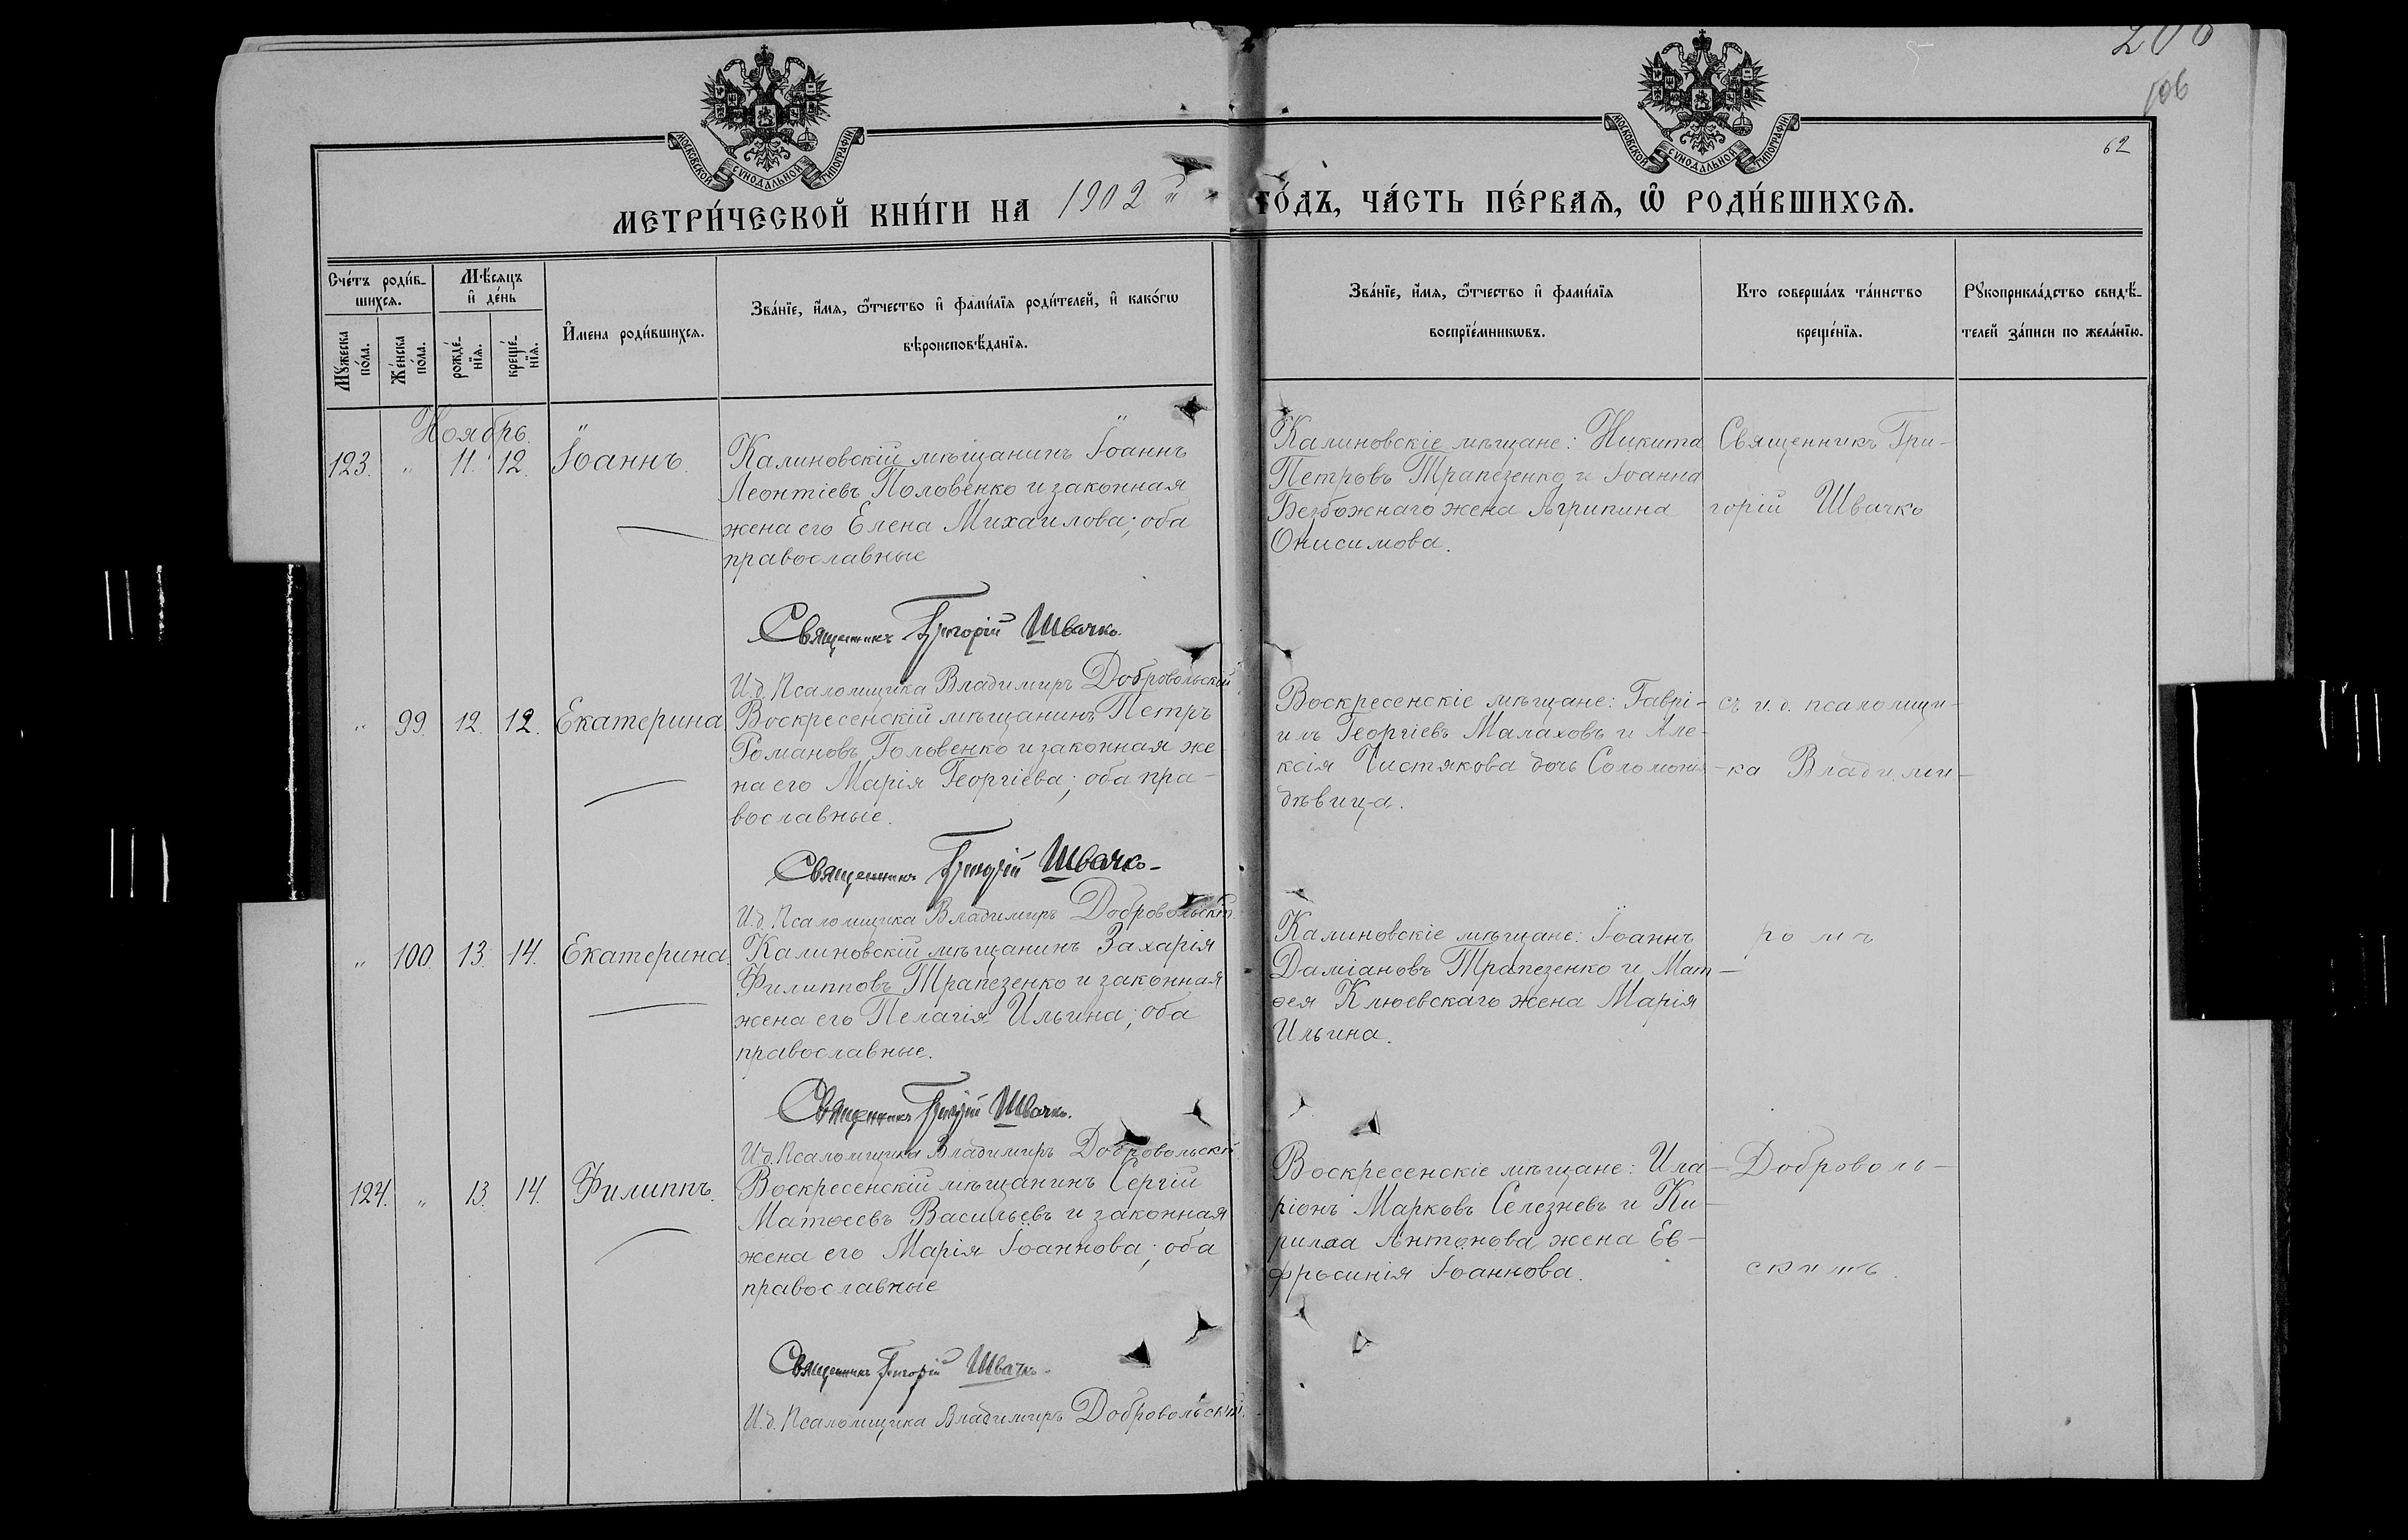 206
106
62
МОСКОВСКОЙ СѴНОДАЛЬНОЙ ТИПОГРАФІИ
МОСКОВСКОЙ СѴНОДАЛЬНОЙ ТИПОГРАФІИ
МЕТРИ́ЧЕСКОЙ КНИ́ГИ НА 1902 й ГО́ДЪ, ЧА́СТЬ ПЕ́РВАЯ, Ѡ РОДИ́ВШИХСЯ.
Сче́тъ роди́в-
шихся.
Мꙋ́жеска
по́ла.
Же́нска
по́ла.
Мѣ́сяцъ
и҆ де́нь
рожде́-
нїя.
креще́-
нїя.
И҆мена роди́вшихся.
Зва́нїе, и҆́мя, ѻ҆́тчество и҆ фами́лїя роди́телей, и҆ како́гѡ
вѣроисповѣ́данїя.
Зва́нїе, и҆́мя, ѻ҆́тчество и҆ фами́лїя
воспрїе́мникѡвъ.
Кто соверша́лъ та́инство
креще́нїя.
Рꙋкоприкла́дство свидѣ́-
телей за́писи по жела́нїю.
Ноябрь.
123. „ 11. 12. Іоаннъ.
Калиновскій мѣщанинъ Іоаннъ
Леонтіевъ Половенко и законная
жена его Елена Михаилова; оба
православные
Священникъ Григорій Швачко.
И.д. Псаломщика Владимиръ Добровольскій
Калиновскіе мѣщане: Никита
Петровъ Трапезенко и Іоанна
Безбожнаго жена Агрипина
Онисимова.
Священникъ Гри-
горій Швачко
„ 99. 12. 12. Екатерина.
Воскресенскій мѣщанинъ Петръ
Романовъ Головенко и законная же-
на его Марія Георгіева; оба пра-
вославные.
Священникъ Григорій Швачко
И.д. Псаломщика Владимиръ Добровольскій
Воскресенскіе мѣщане: Гаврі-
илъ Георгіевъ Малаховъ и Але-
ксія Чистякова дочь Соломонія
дѣвица.
съ и.д. псаломщи-
ка Влади ми-
„ 100. 13. 14. Екатерина.
Калиновскій мѣщанинъ Захарія
Филипповъ Трапезенко и законная
жена его Пелагія Ильина; оба
православные.
Священникъ Григорій Швачко.
И.д. Псаломщика Владимиръ Добровольскій
Калиновскіе мѣщане: Іоаннъ
Даміановъ Трапезенко и Мат-
ѳея Клюевскаго жена Марія
Ильина.
ро мъ
124. „ 13. 14. Филиппъ.
Воскресенскій мѣщанинъ Сергій
Матѳеевъ Васильевъ и законная
жена его Марія Іоаннова; оба
православные
Священникъ Григорій Швачко
И.д. Псаломщика Владимиръ Добровольскій.
Воскресенскіе мѣщане: Ила-
ріонъ Марковъ Селезневъ и Ки-
рилла Антонова жена Ев-
фросинія Іоаннова.
Доброволь-
скимъ.